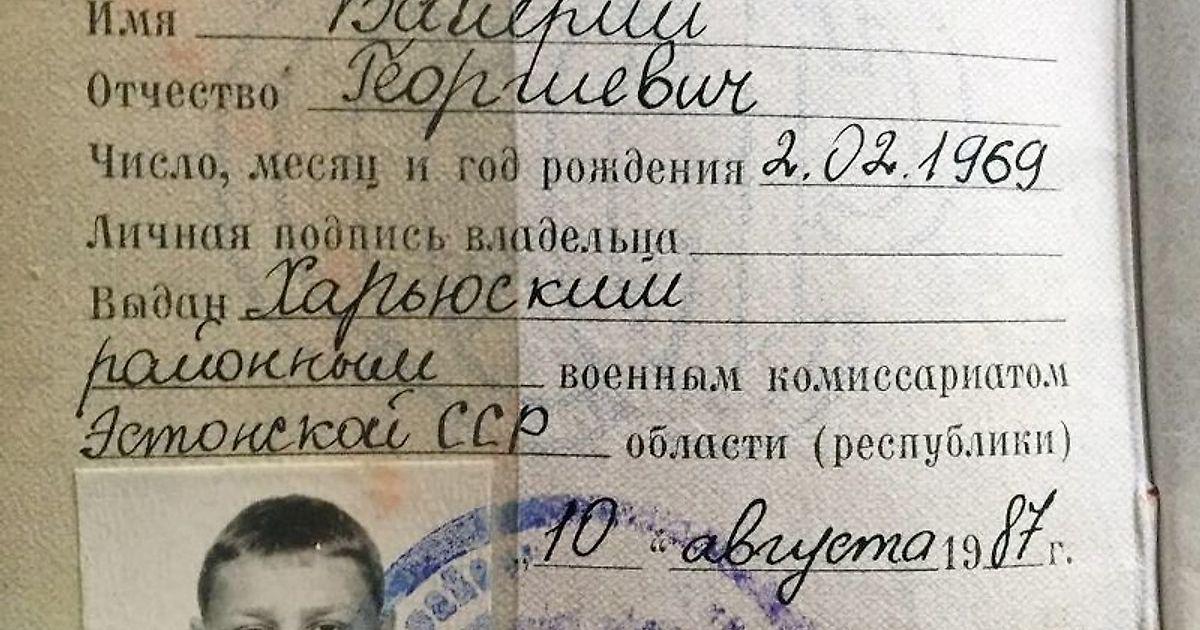 Имя Валерий
Отчество Георгиевич
Число, месяц и год рождения 2.02.1969
Личная подпись владельца
Выдан Харьюским
районным военным комиссариатом
Эстонской ССР области (республики)
„10“ августа 1987 г.